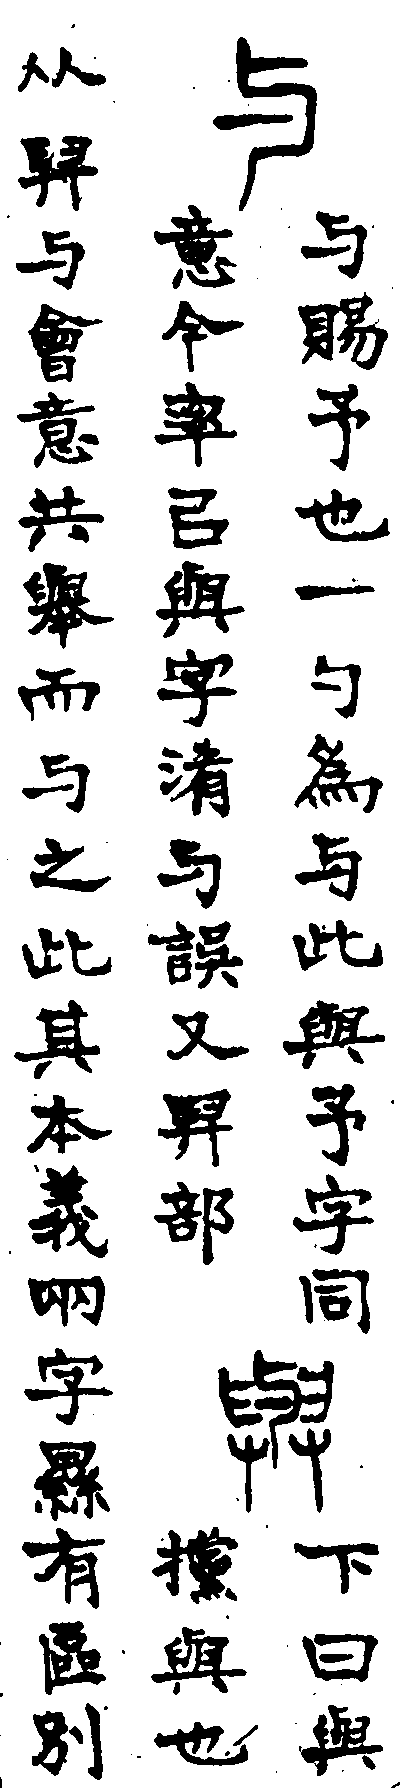 与
与賜予也一勺為与此與予字同
意今率㠯與字淆与誤又舁部
與
下曰與
攩與也
从舁与會意共舉而与之此其本義兩字㬎有區別